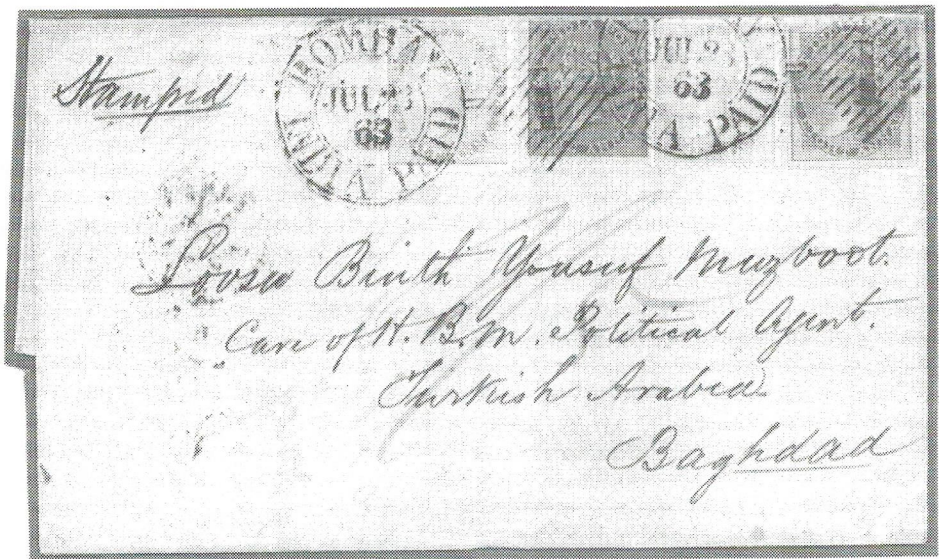 Stamped
BOMBAY
JUL 23
63
INDIA PAID
JUL 23
63
PAID
Binth Yousuf Muzboot.
Care of H. B. M. Political Agent.
Turkish Arabia
Baghdad